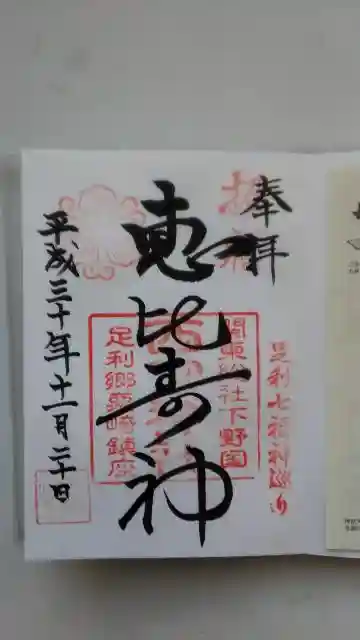 奉拝
足利七福神巡り
恵比寿神
關東総社下野国
足利郷 鎮座
平成三十年十一月二十日